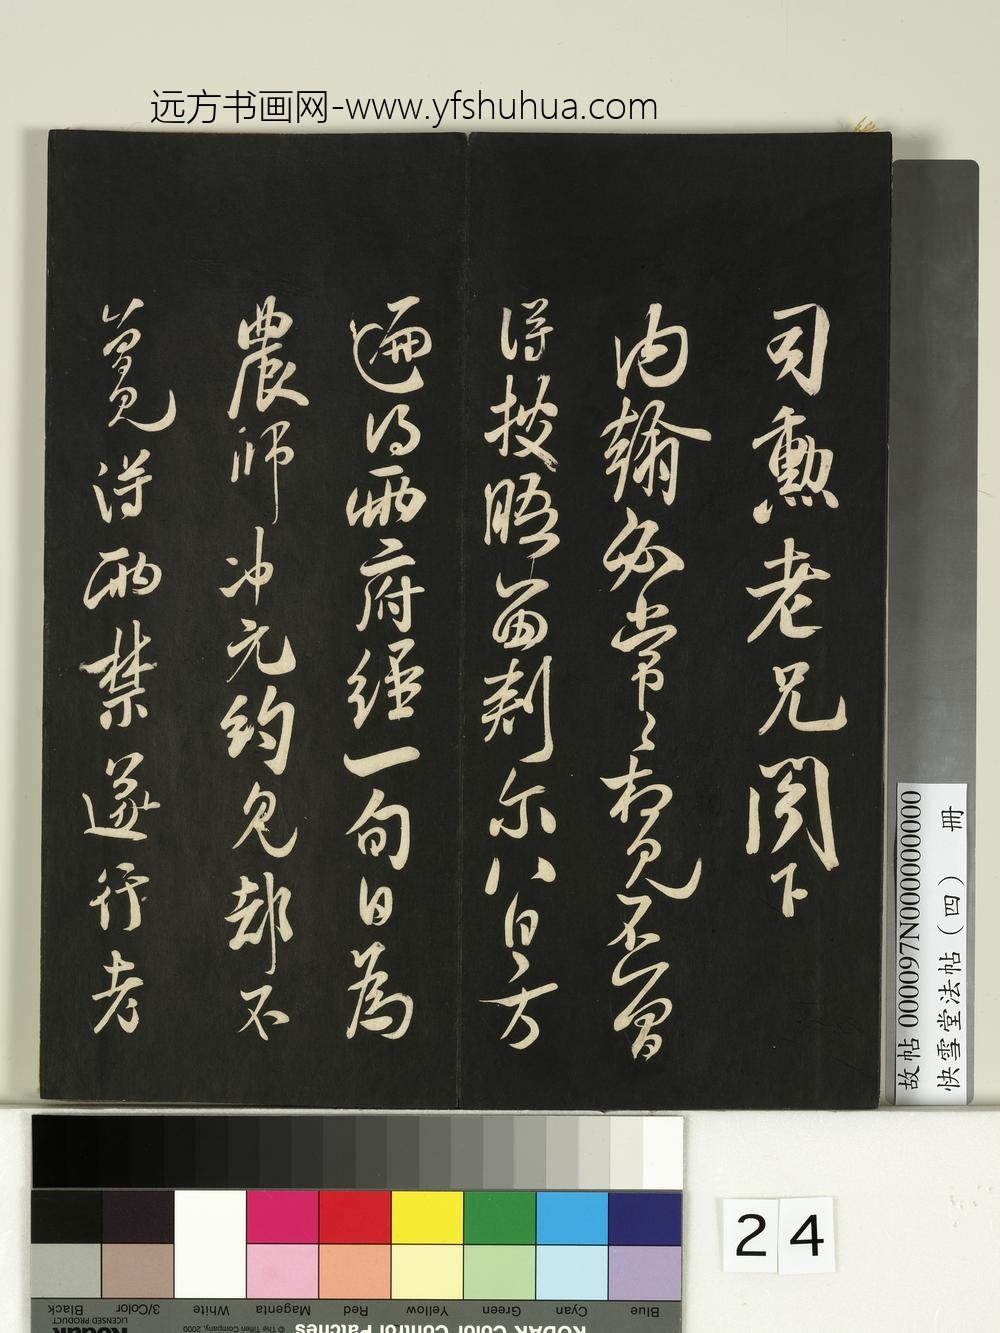 远方书画网-www.yfshuhua.com
司勳老兄閣下
内翰必常〻相見不曾
得披晤留刹尔八日方
遍得兩府經一旬日為
農師冲元約見却不
得兩禁遂行老
故帖 000097N000000000
快雪堂法帖（四） 冊
24
Black
3/Color
White
Magenta
Red
Yellow
Green
Cyan
Blue
KODAK Color Control Patches
© The Tiffen Company, 2000
Kodak
LICENSED PRODUCT